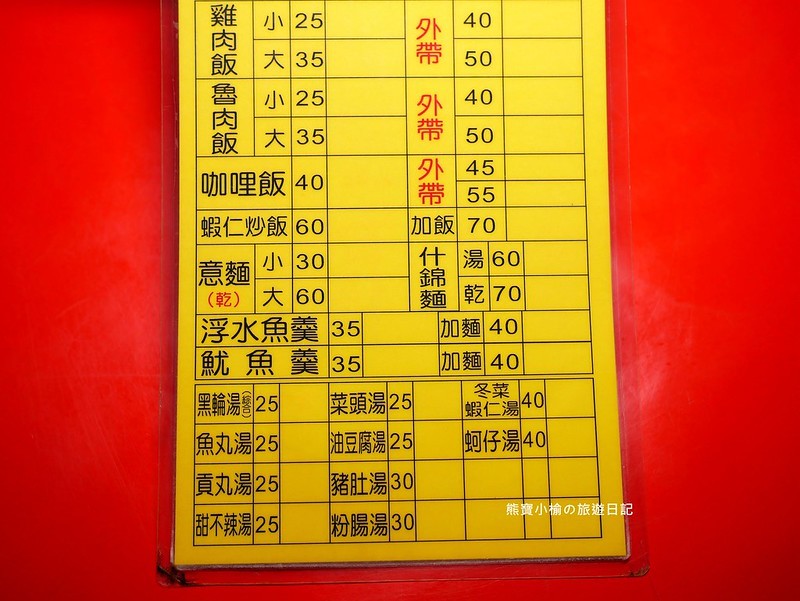 雞肉飯 小 25 外帶 40
大 35 50
魯肉飯 小 25 外帶 40
大 35 50
咖哩飯 40 外帶 45
55
蝦仁炒飯 60 加飯 70
意麵(乾) 小 30 什錦麵 湯 60
大 60 乾 70
浮水魚羹 35 加麵 40
魷魚羹 35 加麵 40
黑輪湯(綜合) 25 菜頭湯 25 冬菜蝦仁湯 40
魚丸湯 25 油豆腐湯 25 蚵仔湯 40
貢丸湯 25 豬肚湯 30
甜不辣湯 25 粉腸湯 30
熊寶小榆の旅遊日記